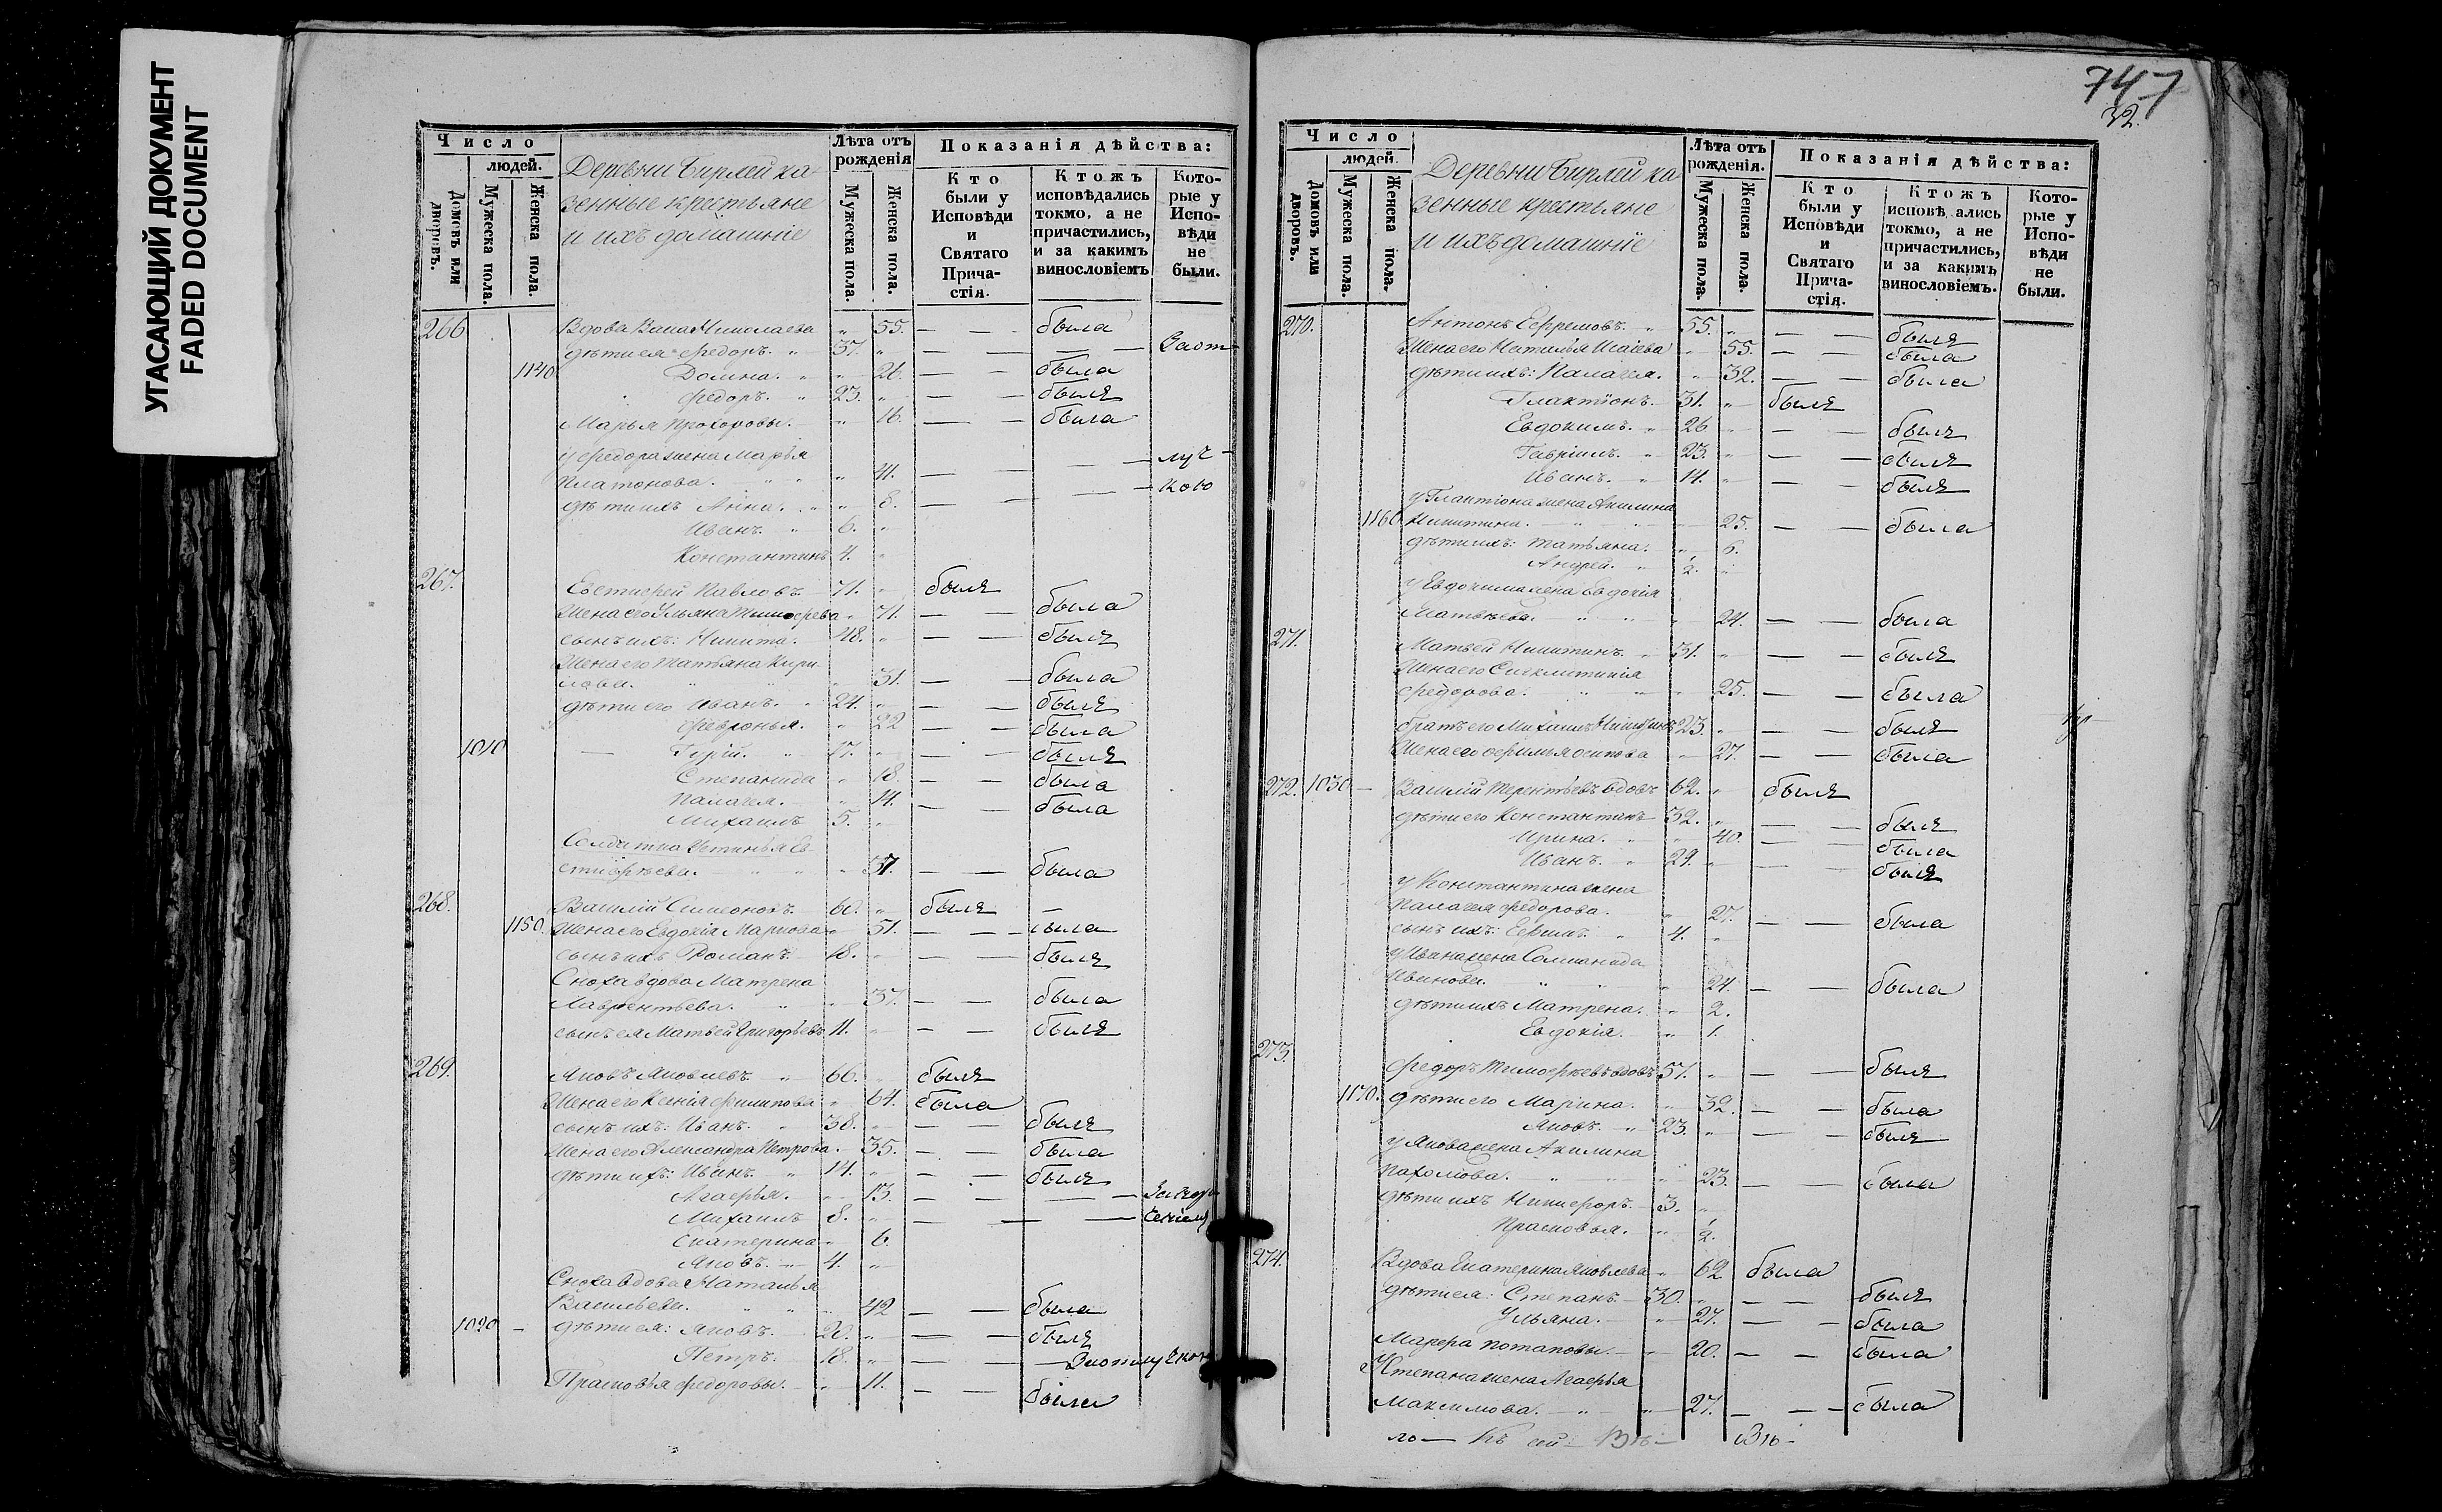 УГАСАЮЩИЙ ДОКУМЕНТ
FADED DOCUMENT
Число
людей.
Домовъ или дворовъ.
Мужеска пола.
Женска пола.
Деревни Бирлей ка-
зенные крестьяне
и ихъ домашніе
Лѣта отъ рожденія
Мужеска пола.
Женска пола.
Показанія дѣйства:
Кто были у Исповѣди и Святаго Прича-стія.
Ктожъ исповѣдались токмо, а не причастились, и за какимъ винословіемъ
Кото-рые у Испо-вѣди не были.
266 Вдова Николаева " 55. — — была
дѣти ея Федоръ. " 37. " — — — — Заот-
1140 Домна. " " 26. — — была
Федоръ. " 23. " — — былъ
Марья Прохоровы. " 16. — — была
у Федора жена Марья луч-
Платонова. " " " 41. — — — —
дѣти ихъ Анна. " " 8. — — — — кою
Иванъ. " 6. "
Константинъ 4. "
267. Евстифей Павловъ. 71. " былъ
Жена его Ульяна Тимофеева " 71. — — была
сынъ ихъ: Никита. 48. " — — былъ
Жена его Татьяна Кири-
лова. " " " 31. — — была
дѣти его Иванъ. 24. " — — былъ
Февронья. " 22 — — была
1010 — Гурій. " 17. " — — былъ
Степанида " 18. — — была
Палагея. " 14. — — была
Михаилъ 5. "
Солдатка Устинья Ев-
стифеева. " " " 37. — — была
268. Василій Симеоновъ. 60. " былъ —
1150. Жена его Евдокія Маркова " 51. — — — была
сынъ ихъ Романъ. 18. " — — былъ
Сноха вдова Матрена
Лаврентьева. " " 37. — — была
сынъ ея Матвей Григорьевъ 11. " — — былъ
269. Яковъ Яковлевъ. " 66. " былъ
Жена его Ксенія Филипова " 64. была
сынъ ихъ: Иванъ. " 38. " — — былъ
Жена его Александра Петрова. " 35. — — была
дѣти ихъ: Иванъ. " 14. " — — былъ
Агафья. " " 13. — — — —
Михаилъ 8. " — — —
Екатерина " 6.
Яковъ. 4. "
Сноха вдова Наталья
Васильева. " " " 42 — — была
1020 — дѣти ея: Яковъ. 20. " — — былъ
Петръ. 18. " — — — За отлучкою
Прасковья Федоровы. " 11. — — была
747
32.
Число
людей.
Домовъ или дворовъ.
Мужеска пола.
Женска пола.
Деревни Бирлей ка
зенные крестьяне
и ихъ домашніе
Лѣта отъ рожденія.
Мужеска пола.
Женска пола.
Показанія дѣйства:
Кто были у Исповѣди и Святаго Прича-стія.
Ктожъ исповѣ ались токмо, а не причастились, и за какимъ винословіемъ.
Кото-рые у Испо-вѣди не были.
270. Антонъ Ефремовъ. " 55. " — — былъ
Жена его Наталья Исаева " 55. — — была
дѣти ихъ: Палагея. " 32. — — была
Галактіонъ. 31. " былъ
Евдокимъ. " 26 " — — былъ
Гавріилъ. " 23. " — — былъ
Иванъ. " 14. " — — былъ
у Галактіона жена Акилина
1160 Никитина. " " " 25. — — была
дѣти ихъ: Татьяна. " 6.
Андрей. " ½. "
у Евдокима жена Евдокія
Матвѣева. " " " 24. — — была
271. Матвей Никитинъ. " 31. " — — былъ
Жена его Синклитикія
Федорова. " " " 25. — — была
братъ его Михаилъ Никитинъ 23. " — — былъ
Жена его Осипова " 27. — — была
272. 1030 — Василій Терентьевъ вдовъ 62. " былъ
дѣти его Константинъ 32. " — — былъ
Ирина. " " 40. — — была
Иванъ. " 29. " — — былъ
у Константина жена
Палагея Федорова. " 27. — — была
сынъ ихъ: Ефимъ. " 4. "
у Ивана жена Соломанида
Иванова. " " " 24. — — была
дѣти ихъ Матрена. " 2.
Евдокія. " 1.
273. Федоръ Тимофеевъ вдовъ 57. " — — былъ
1170. дѣти его Марина. " 32. — — была
Яковъ. " 23. " — — былъ
у Якова жена Акилина
Пахомова. " " " 23. — — была
дѣти ихъ Никифоръ. 3. "
Прасковья. " ½.
274. Вдова Екатерина Яковлева " 62 была
дѣти ея: Степанъ. 30. " — — былъ
Ульяна. " 27. — — была
Марфа Потаповы. " 20. — — была
у Степана жена Агафья
Максимова. " " 27. — — — была